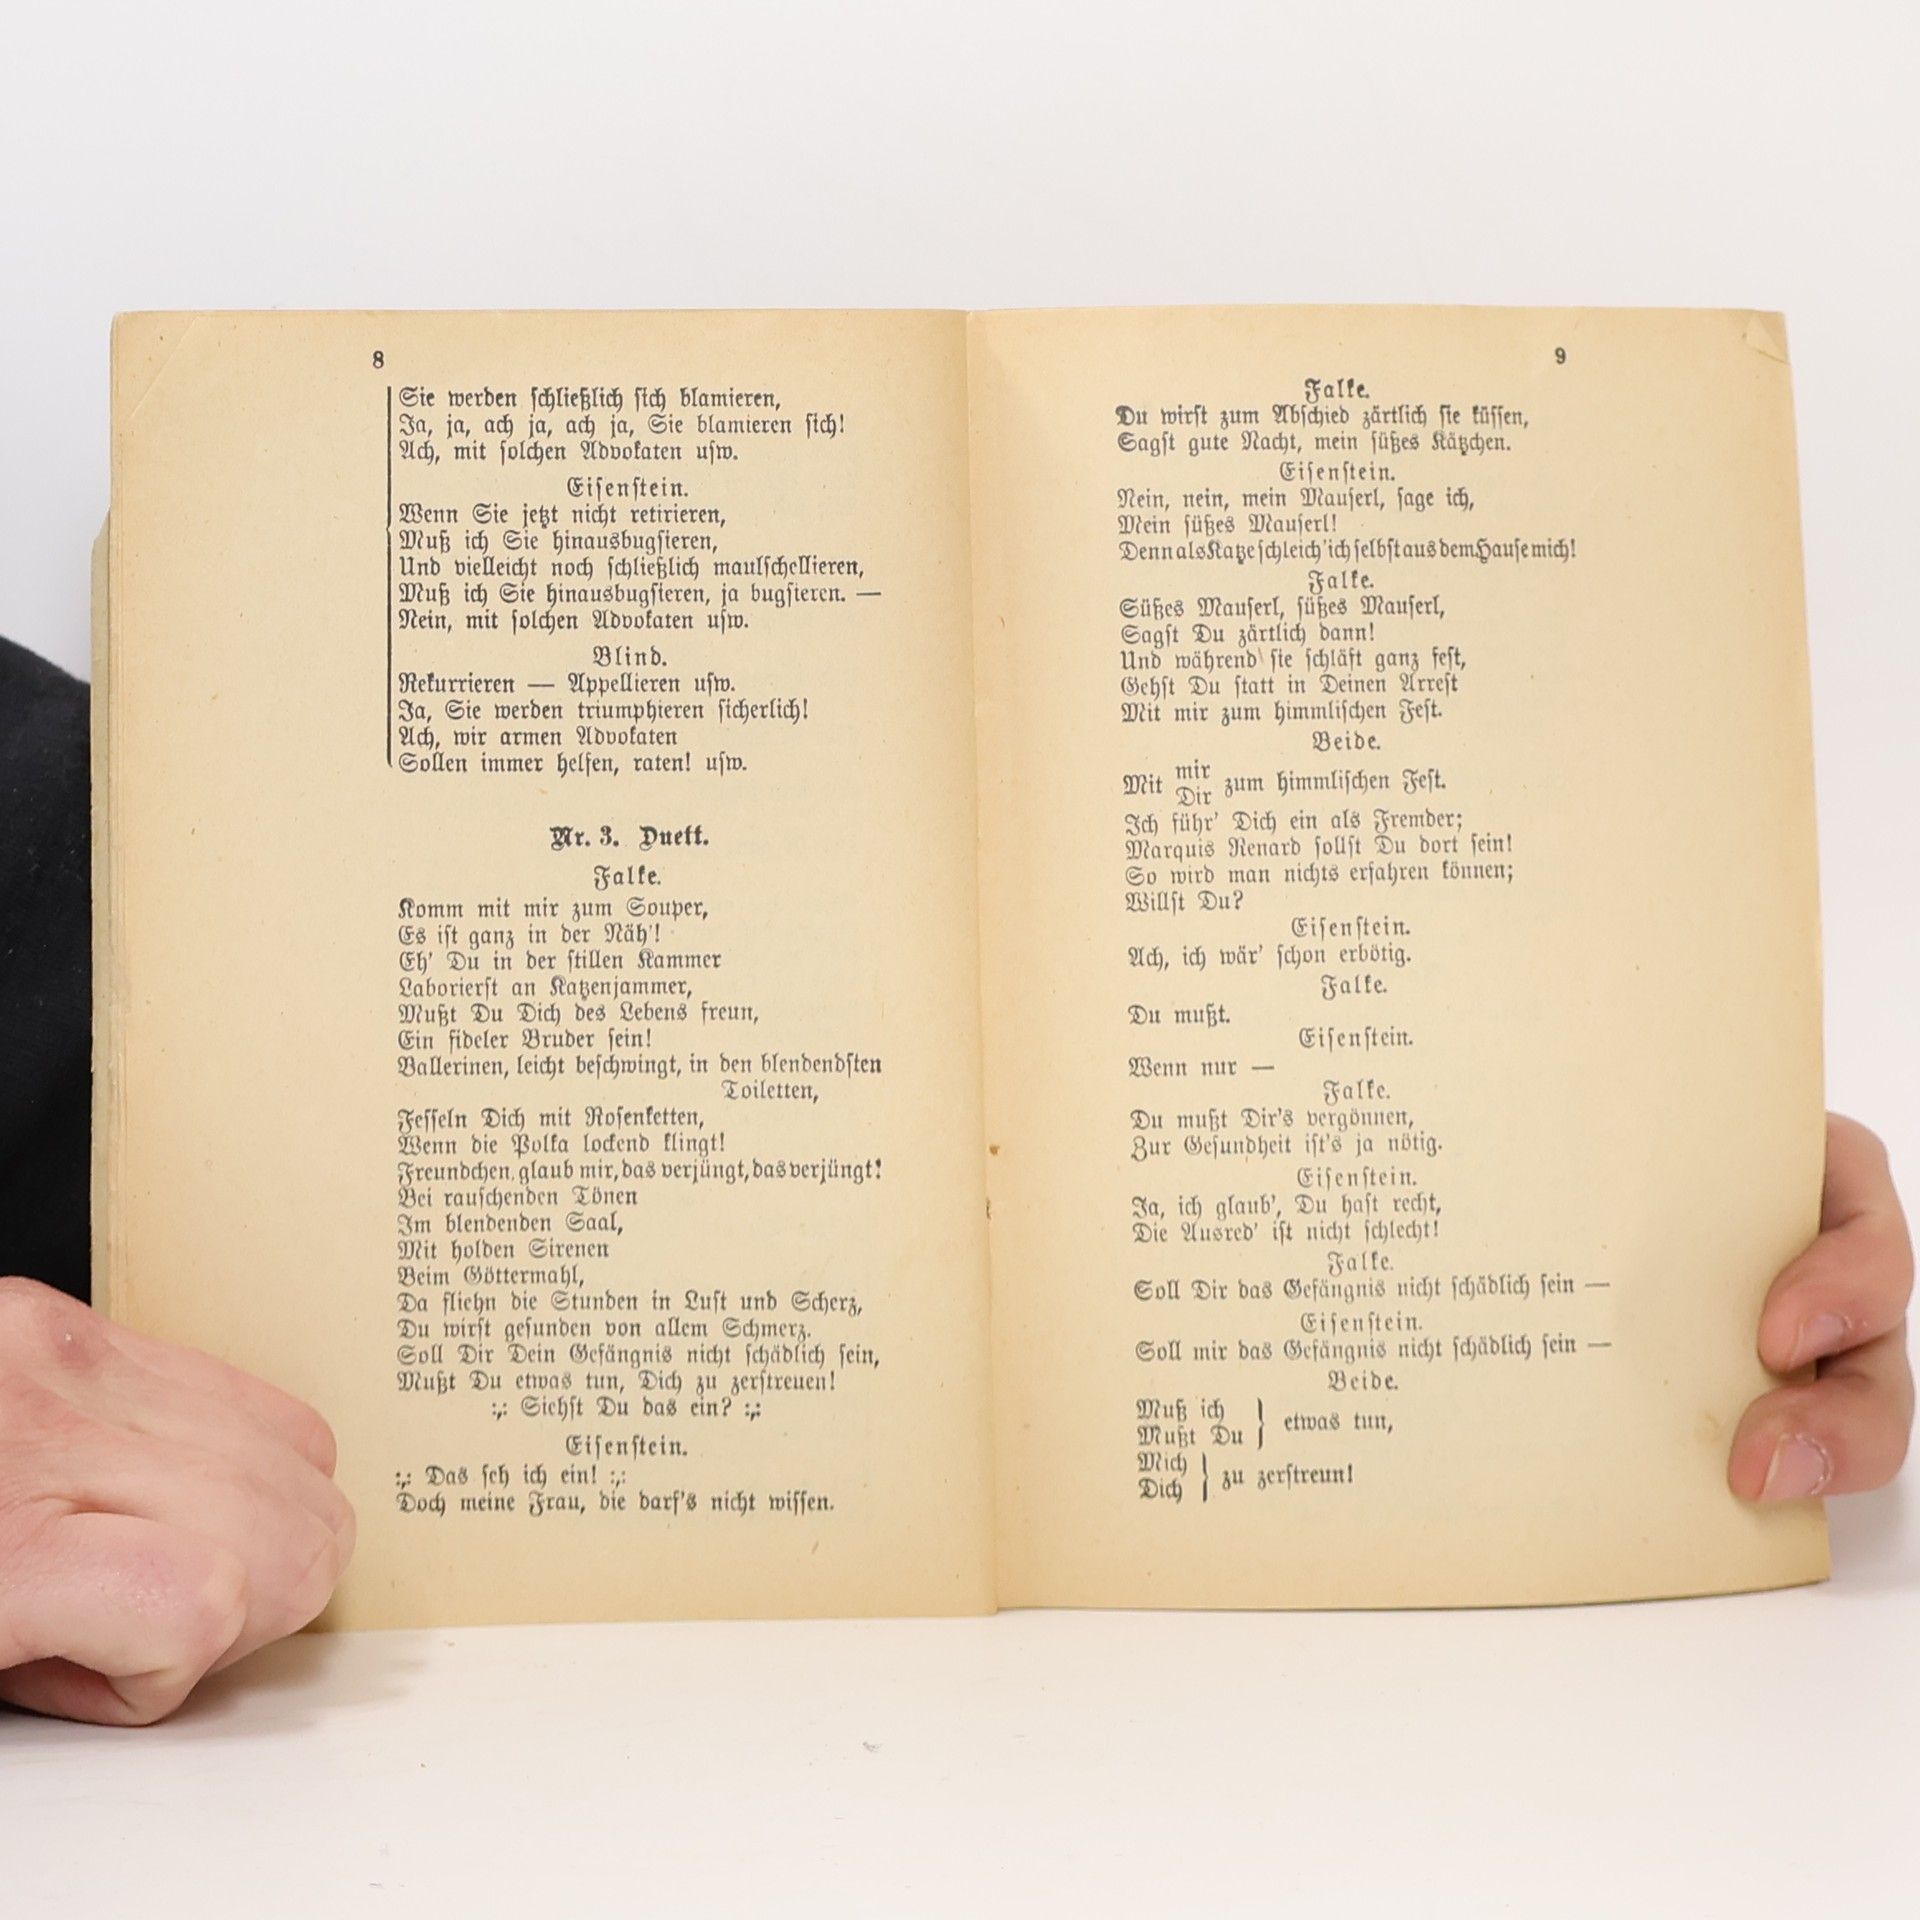 8
Sie werden schließlich sich blamieren,
Ja, ja, ach ja, ach ja, Sie blamieren sich!
Ach, mit solchen Advokaten usw.
Eisenstein.
Wenn Sie jetzt nicht retirieren,
Muß ich Sie hinausbugsieren,
Und vielleicht noch schließlich maulschellieren,
Muß ich Sie hinausbugsieren, ja bugsieren. —
Nein, mit solchen Advokaten usw.
Blind.
Rekurrieren — Appellieren usw.
Ja, Sie werden triumphieren sicherlich!
Ach, wir armen Advokaten
Sollen immer helfen, raten! usw.
Nr. 3. Duett.
Falke.
Komm mit mir zum Souper,
Es ist ganz in der Näh'!
Eh' Du in der stillen Kammer
Laborierst an Katzenjammer,
Mußt Du Dich des Lebens freun,
Ein fideler Bruder sein!
Ballerinen, leicht beschwingt, in den blendendsten
Toiletten,
Fesseln Dich mit Rosenketten,
Wenn die Polka lockend klingt!
Freundchen, glaub mir, das verjüngt, das verjüngt!
Bei rauschenden Tönen
Im blendenden Saal,
Mit holden Sirenen
Beim Göttermahl,
Da fliehn die Stunden in Lust und Scherz,
Du wirst gesunden von allem Schmerz.
Soll Dir Dein Gefängnis nicht schädlich sein,
Mußt Du etwas tun, Dich zu zerstreuen!
:,: Siehst Du das ein? :,:
Eisenstein.
:,: Das seh ich ein! :,:
Doch meine Frau, die darf's nicht wissen.
9
Falke.
Du wirst zum Abschied zärtlich sie küssen,
Sagst gute Nacht, mein süßes Kätzchen.
Eisenstein.
Nein, nein, mein Mauserl, sage ich,
Mein süßes Mauserl!
Denn als Katze schleich' ich selbst aus dem Hause mich!
Falke.
Süßes Mauserl, süßes Mauserl,
Sagst Du zärtlich dann!
Und während sie schläft ganz fest,
Gehst Du statt in Deinen Arrest
Mit mir zum himmlischen Fest.
Beide.
Mit mir zum himmlischen Fest.
Dir
Ich führ' Dich ein als Fremder;
Marquis Renard sollst Du dort sein!
So wird man nichts erfahren können;
Willst Du?
Eisenstein.
Ach, ich wär' schon erbötig.
Falke.
Du mußt.
Eisenstein.
Wenn nur —
Falke.
Du mußt Dir's vergönnen,
Zur Gesundheit ist's ja nötig.
Eisenstein.
Ja, ich glaub', Du hast recht,
Die Ausred' ist nicht schlecht!
Falke.
Soll Dir das Gefängnis nicht schädlich sein —
Eisenstein.
Soll mir das Gefängnis nicht schädlich sein —
Beide.
Muß ich } etwas tun,
Mußt Du
Mich } zu zerstreun!
Dich